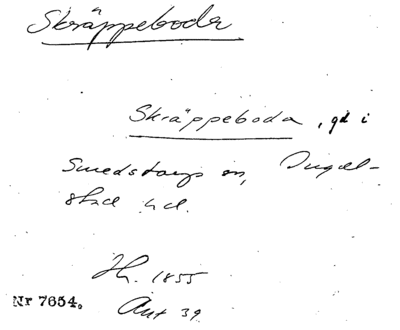 Skräppeboda
Skräppeboda, gd i
Smedstorps sn, Ingel-
stad hd.
Jb. 1855
Nr 7654. Ant 39